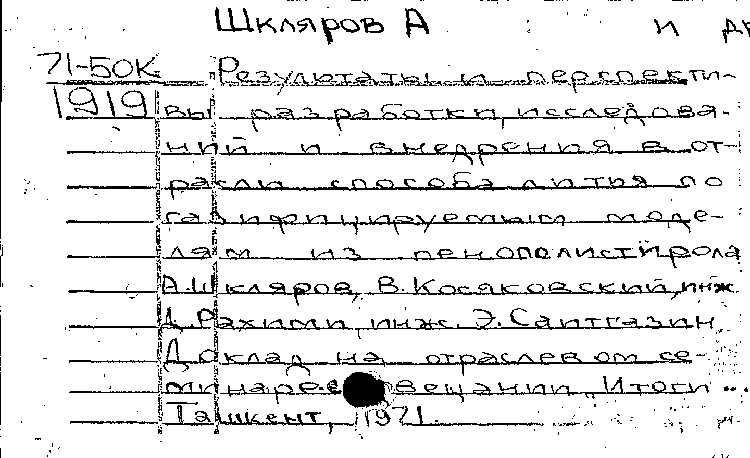 Шкляров А и др
71-50К Результаты и перспекти-
1919 вы разработки, исследова-
ний и внедрения в от-
расли способа литья по
газифицируемым моде-
лям из пенополистирола
А.Шкляров, В.Косяковский, инж.
Д.Рахими, инж. Э.Саитгазин
Доклад на отраслевом се-
минаре вещании „Итоги...
Ташкент, 1971.